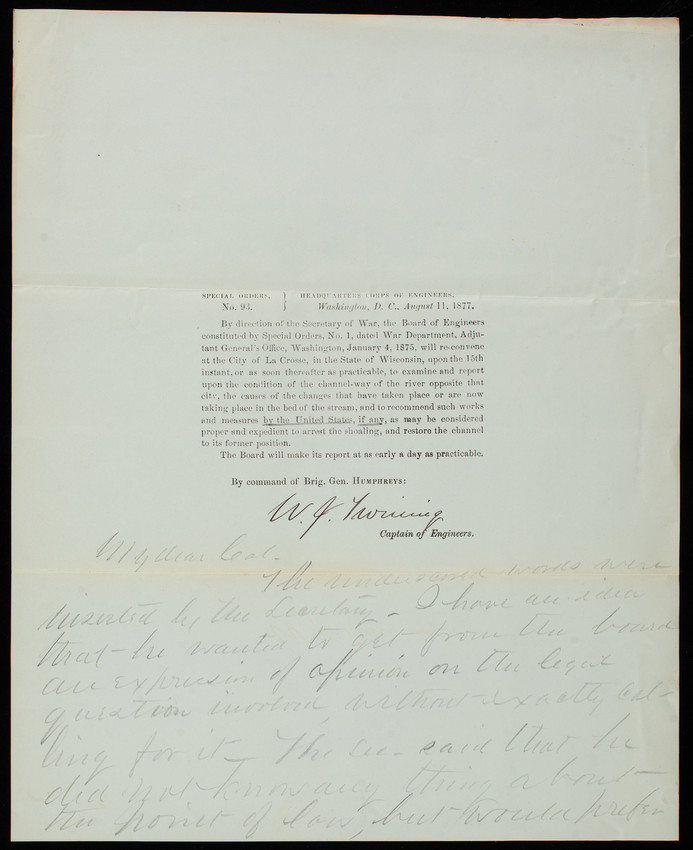 SPECIAL ORDERS, } HEADQUARTERS CORPS OF ENGINEERS,
No. 93. } Washington, D. C., August 11, 1877.
By direction of the Secretary of War, the Board of Engineers
constituted by Special Orders, No. 1, dated War Department, Adju-
tant General's Office, Washington, January 4, 1875, will re-convene
at the City of La Crosse, in the State of Wisconsin, upon the 15th
instant, or as soon thereafter as practicable, to examine and report
upon the condition of the channel-way of the river opposite that
city, the causes of the changes that have taken place or are now
taking place in the bed of the stream, and to recommend such works
and measures by the United States, if any, as may be considered
proper and expedient to arrest the shoaling, and restore the channel
to its former position.
The Board will make its report at as early a day as practicable.
By command of Brig. Gen. HUMPHREYS:
W. J. Twining
Captain of Engineers.
My dear Col-
The underscored words were
inserted by the Secretary - I have an idea
that he wanted to get from the board
an expression of opinion on the legal
question involved, without exactly cal-
ling for it - The said that he
did not know any thing about
the point of law, but would prefer